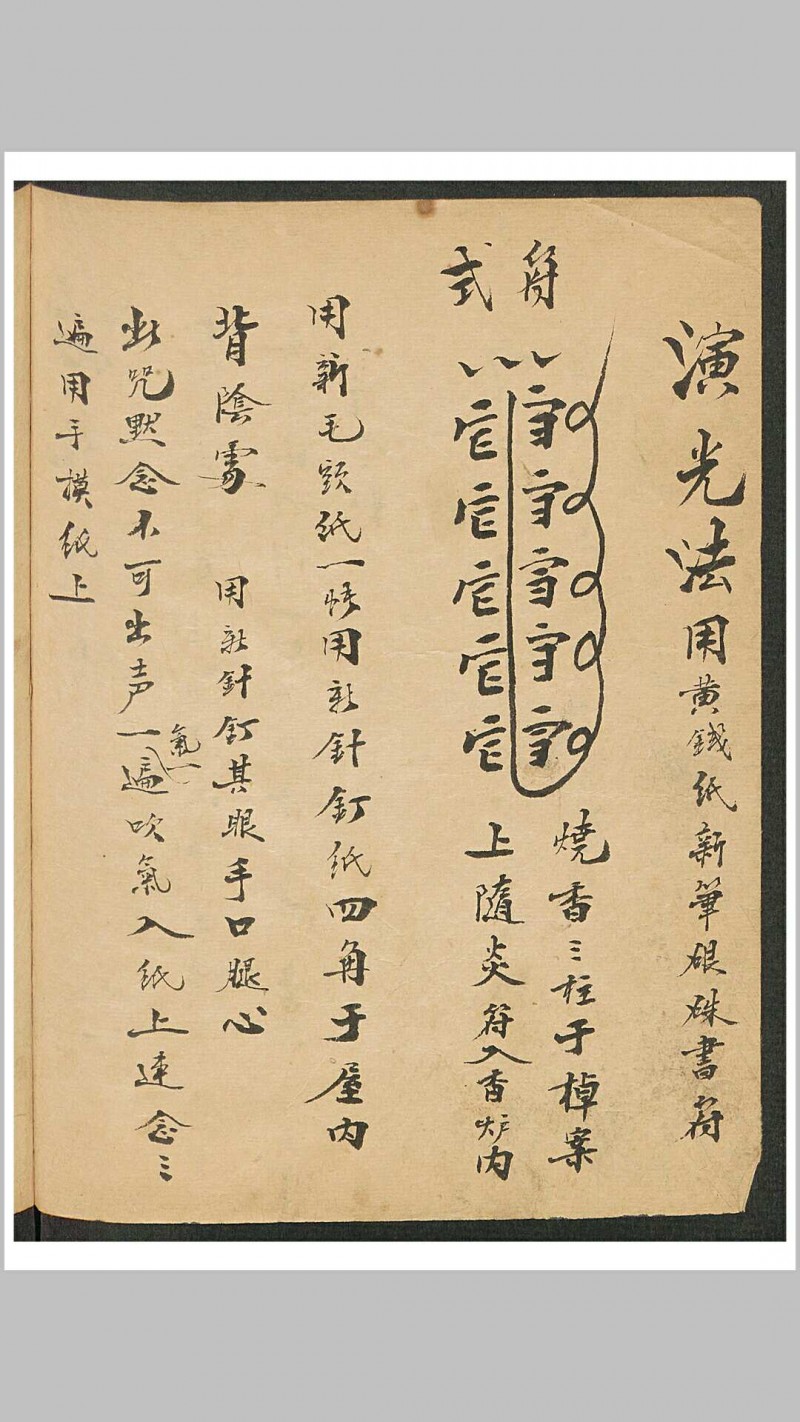 演光法用黄錢紙新筆硍硃書符
符
式
燒香三柱于棹案
上隨炎符入香炉内
用新毛頭紙一張用新針釘紙四角于屋内
背陰處 用新針釘其眼手口腿心
此咒默念不可出声一氣一遍吹氣入紙上連念三
遍用手摸紙上